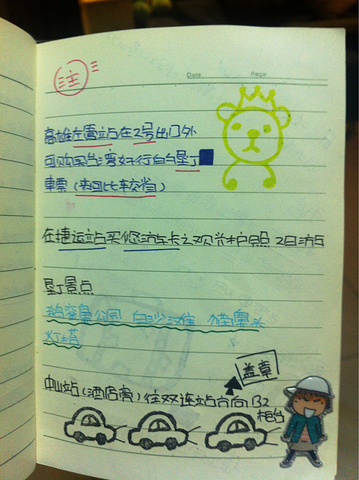 注
Date: Page:
高雄左营站在2号出门外
可购买台湾好行的垦丁
車票(来回比较省)
在捷运站买悠游卡之观光护照 2日游
垦丁景点
鹅銮鼻公园 白沙湾 猫鼻头
灯塔
盖章
中山站(酒店旁)往双连站方向 B2
柜台